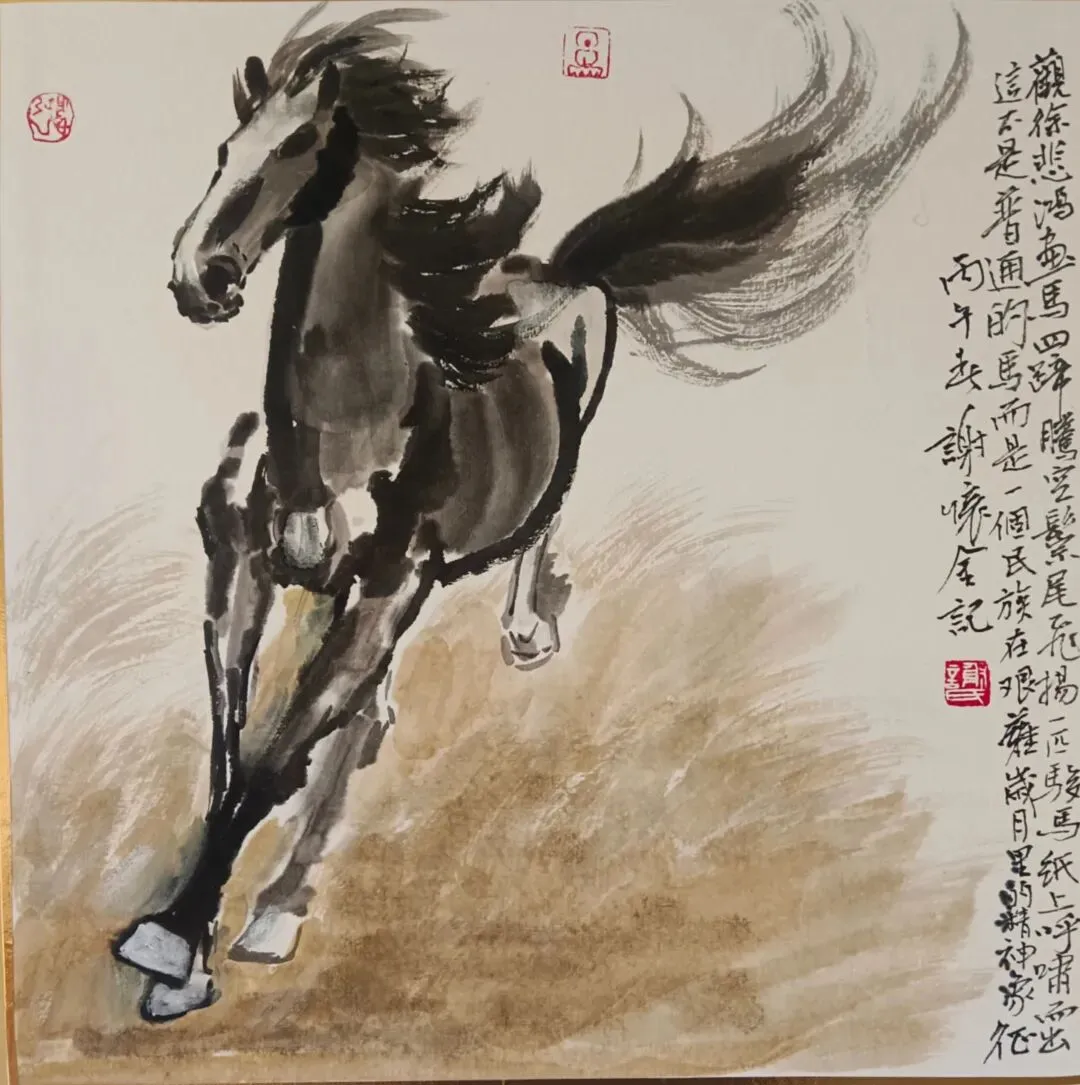 觀徐悲鴻畫馬四蹄騰空鬃尾飛揚一匹駿馬紙上呼嘯而出
這不是普通的馬而是一個民族在艱難歲月里的精神象征
丙午春謝懷金記